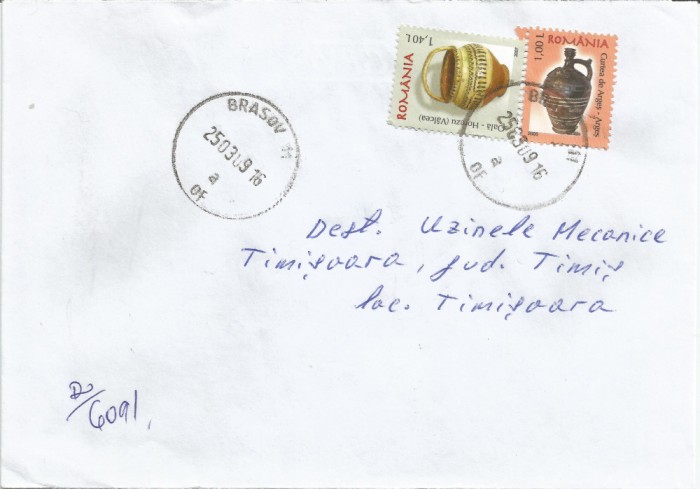 1,40 L
ROMÂNIA
Oală - Horezu (Vâlcea)
ROMÂNIA
1,00 L
Curtea de Argeş - Argeş
BRASOV 11
250309 16
a
OF
BR 11
250309 16
a
OF
Dest. Uzinele Mecanice
Timişoara, jud. Timiş
loc. Timişoara
6091